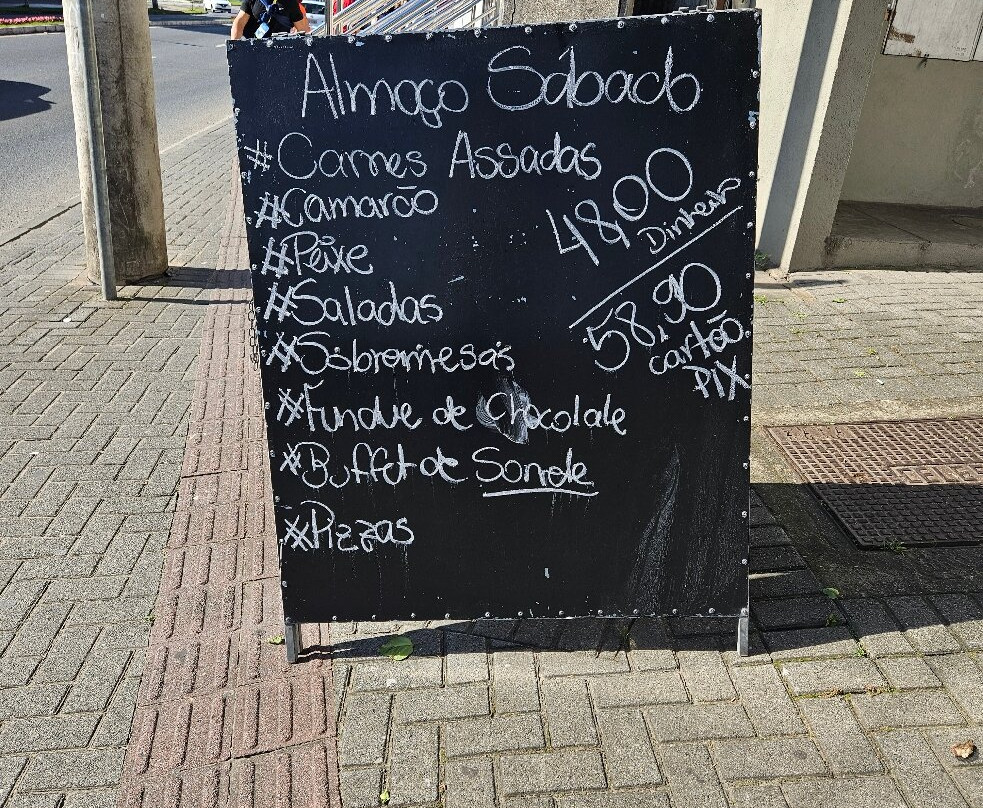 Almoço Sábado
#Carnes Assadas
#Camarão
#Peixe
#Saladas
#Sobremesas
#Fundue de Chocolate
#Buffet de Sorvete
#Pizzas
4800
Dinheiro
58,90
cartão
PIX